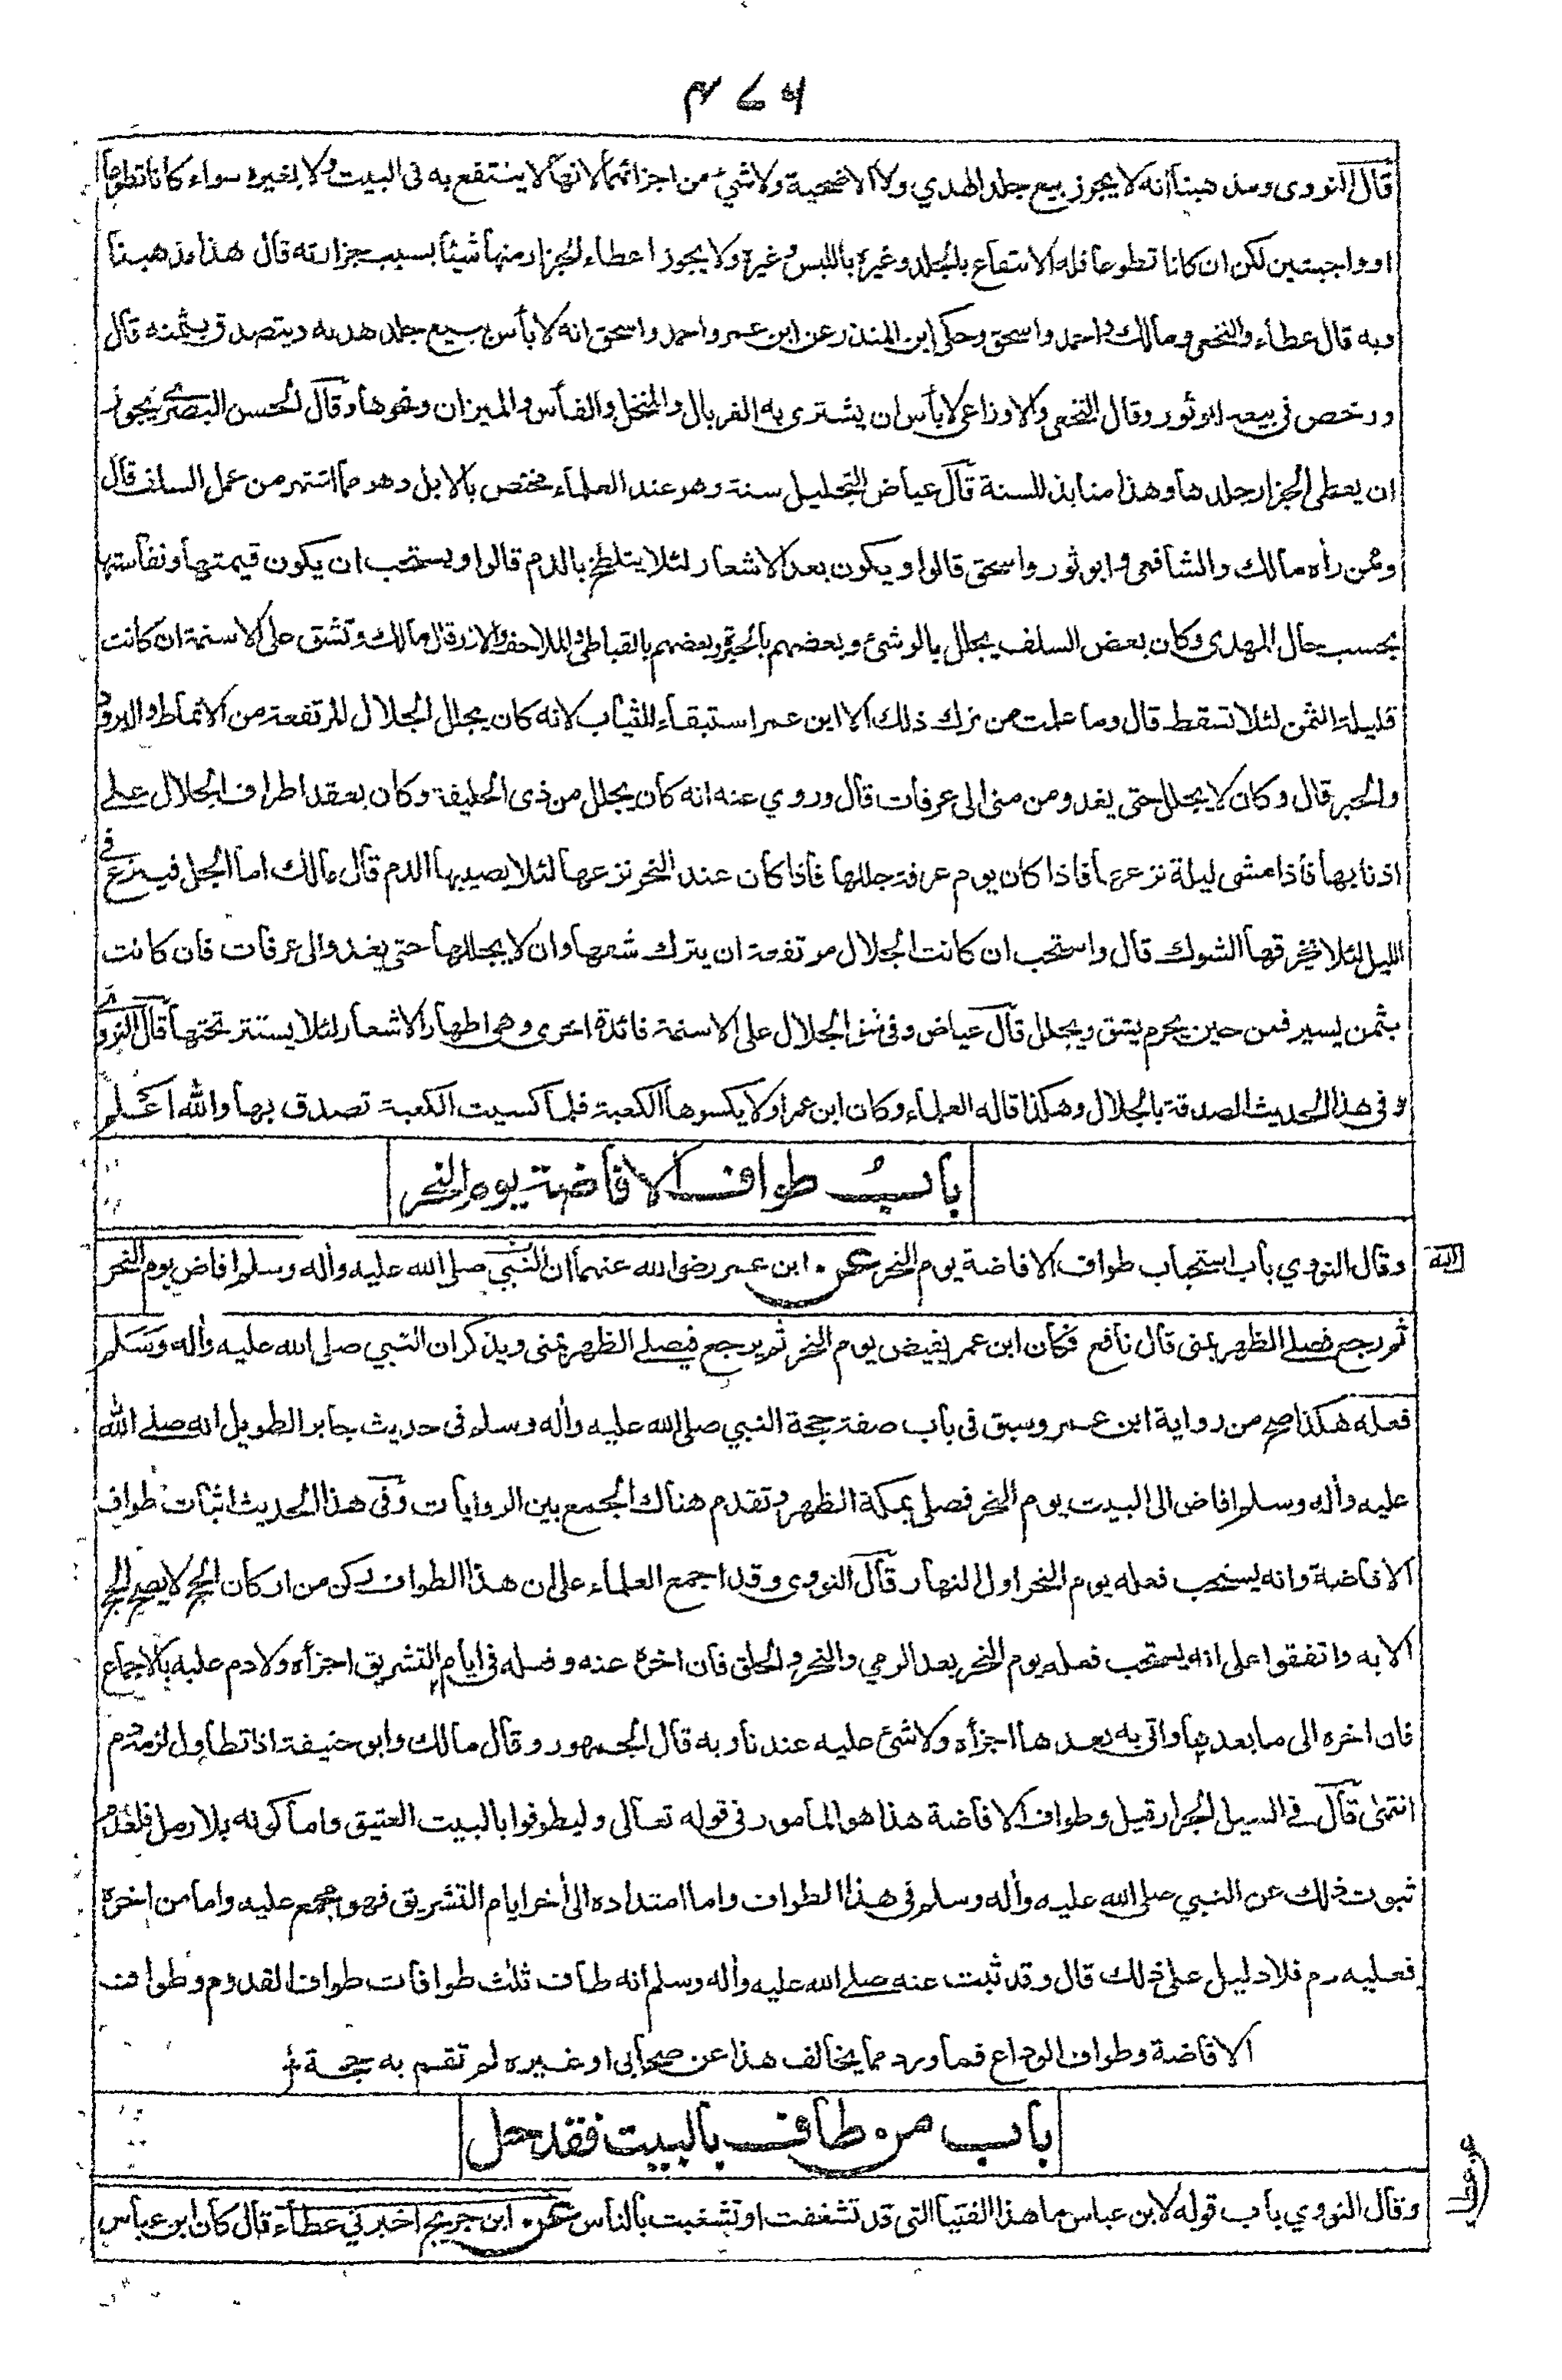 قال النووى ومذهبنا انه لا يجوز بيع جلد الهدي ولا الاضحية ولا شيء من اجزائهما لانها لا ينتفع به فى البيت ولا بغيره سواء كانا تطوعا
او واجبتين لكن ان كانا تطوعا فله الانتفاع بالجلد وغيره باللبس وغيره ولا يجوز اعطاء الجزار منها شيئا بسبب جزارته قال هذا مذهبنا
وبه قال عطاء والنخعى ومالك واحمد واسحق وحكى ابن المنذر عن ابن عمر واحمد واسحق انه لا بأس ببيع جلد هديه ويتصدق بثمنه قال
ورخص فى بيعه ابو ثور وقال النخعى والاوزاعى لا بأس ان يشترى به الغربال والمنخل والفأس والميزان ونحوها وقال الحسن البصرى يجوز
ان يعطى الجزار جلدها وهذا منابذ للسنة قال عياض التجليل سنة وهو عند العلماء مختص بالابل وهو مما اشتهر من عمل السلف قال
وممن رأه مالك والشافعى وابو ثور واسحق قالوا ويكون بعد الاشعار لئلا يتلطخ بالدم قالوا ويستحب ان يكون قيمتها ونفاستها
بحسب حال المهدى وكان بعض السلف يجلل بالوشئ وبعضهم بالحبرة وبعضهم بالقباطى والملاحف والازر قال مالك وتشق على الاسنمة ان كانت
قليلة الثمن لئلا تسقط قال وما علمت من ترك ذلك الا ابن عمر استبقاء للثياب لانه كان يجلل الجلال المرتفعة من الانماط والبرود
والحبر قال وكان لا يجلل حتى يغدو من منى الى عرفات قال وروي عنه انه كان يجلل من ذى الحليفة وكان يعقد اطراف الجلال على
اذنابها فاذا مشى ليلة نزعها فاذا كان يوم عرفة جللها فاذا كان عند النحر نزعها لئلا يصيبها الدم قال مالك اما الجل فينزع فى
الليل لئلا يخرقها الشوك قال واستحب ان كانت الجلال مرتفعة ان يترك شقها وان لا يجللها حتى يغدو الى عرفات فان كانت
بثمن يسير فمن حين يحرم يشق ويجلل قال عياض وفى شق الجلال على الاسنمة فائدة اخرى وهى اظهار الاشعار لئلا يستتر تحتها قال النووى
وفى هذا الحديث الصدقة بالجلال وهكذا قاله العلماء وكان ابن عمر اولا يكسوها الكعبة فلما كسيت الكعبة تصدق بها والله اعلم
باب طواف الافاضة يوم النحر
وقال النووي باب استحباب طواف الافاضة يوم النحر عن ابن عمر رضى الله عنهما ان النبي صلى الله عليه واله وسلم افاض يوم النحر
ثم رجع فصلى الظهر بمنى قال نافع فكان ابن عمر يفيض يوم النحر ثم يرجع فيصلى الظهر بمنى ويذكر ان النبي صلى الله عليه واله وسلم
فعله هكذا صح من رواية ابن عمر وسبق فى باب صفة حجة النبي صلى الله عليه واله وسلم فى حديث جابر الطويل انه صلى الله
عليه واله وسلم افاض الى البيت يوم النحر فصلى بمكة الظهر وتقدم هناك الجمع بين الروايات وفى هذا الحديث اثبات طواف
الافاضة وانه يستحب فعله يوم النحر اول النهار قال النووى وقد اجمع العلماء على ان هذا الطواف ركن من اركان الحج لا يصح الحج
الا به واتفقوا على انه يستحب فعله يوم النحر بعد الرمي والنحر والحلق فان اخره عنه وفعله فى ايام التشريق اجزأه ولا دم عليه بالاجماع
فان اخره الى ما بعدها واتى به بعدها اجزأه ولا شئ عليه عندنا وبه قال الجمهور وقال مالك وابو حنيفة اذا تطاول لزمه دم
انتهى قال فى السيل الجرار قيل وطواف الافاضة هذا هو المأمور فى قوله تعالى وليطوفوا بالبيت العتيق واما كونه بلا رمل فلعدم
ثبوت ذلك عن النبي صلى الله عليه واله وسلم فى هذا الطواف واما امتداده الى اخر ايام التشريق فهو مجمع عليه واما من اخره
فعليه دم فلا دليل على ذلك قال وقد ثبت عنه صلى الله عليه واله وسلم انه طاف ثلث طوافات طواف القدوم وطواف
الافاضة وطواف الوداع فما ورد مما يخالف هذا عن صحابى او غيره لم تقم به حجة
باب من طاف بالبيت فقد حل
وقال النووي باب قوله لابن عباس ما هذا الفتيا التى قد تشغفت او تشغبت بالناس عن ابن جريج اخبرني عطاء قال كان ابن عباس